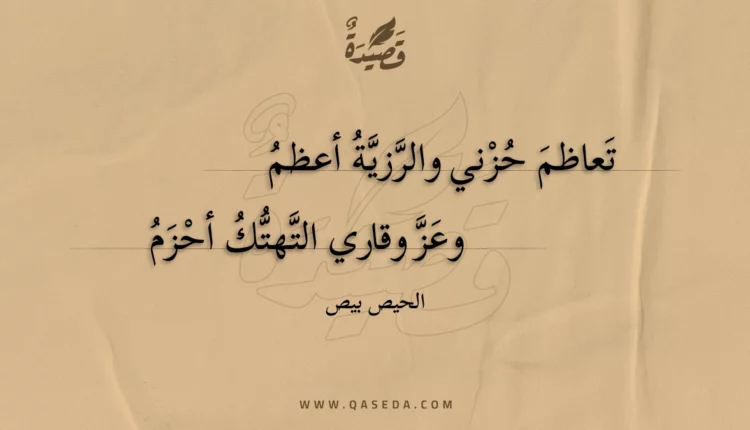 قَصِيْدَةٌ
تَعاظمَ حُزْني والرَّزيَّةُ أعظمُ
وعَزَّ وقاري التَّهتُّكُ أحْزَمُ
الحيص بيص
WWW.QASEDA.COM